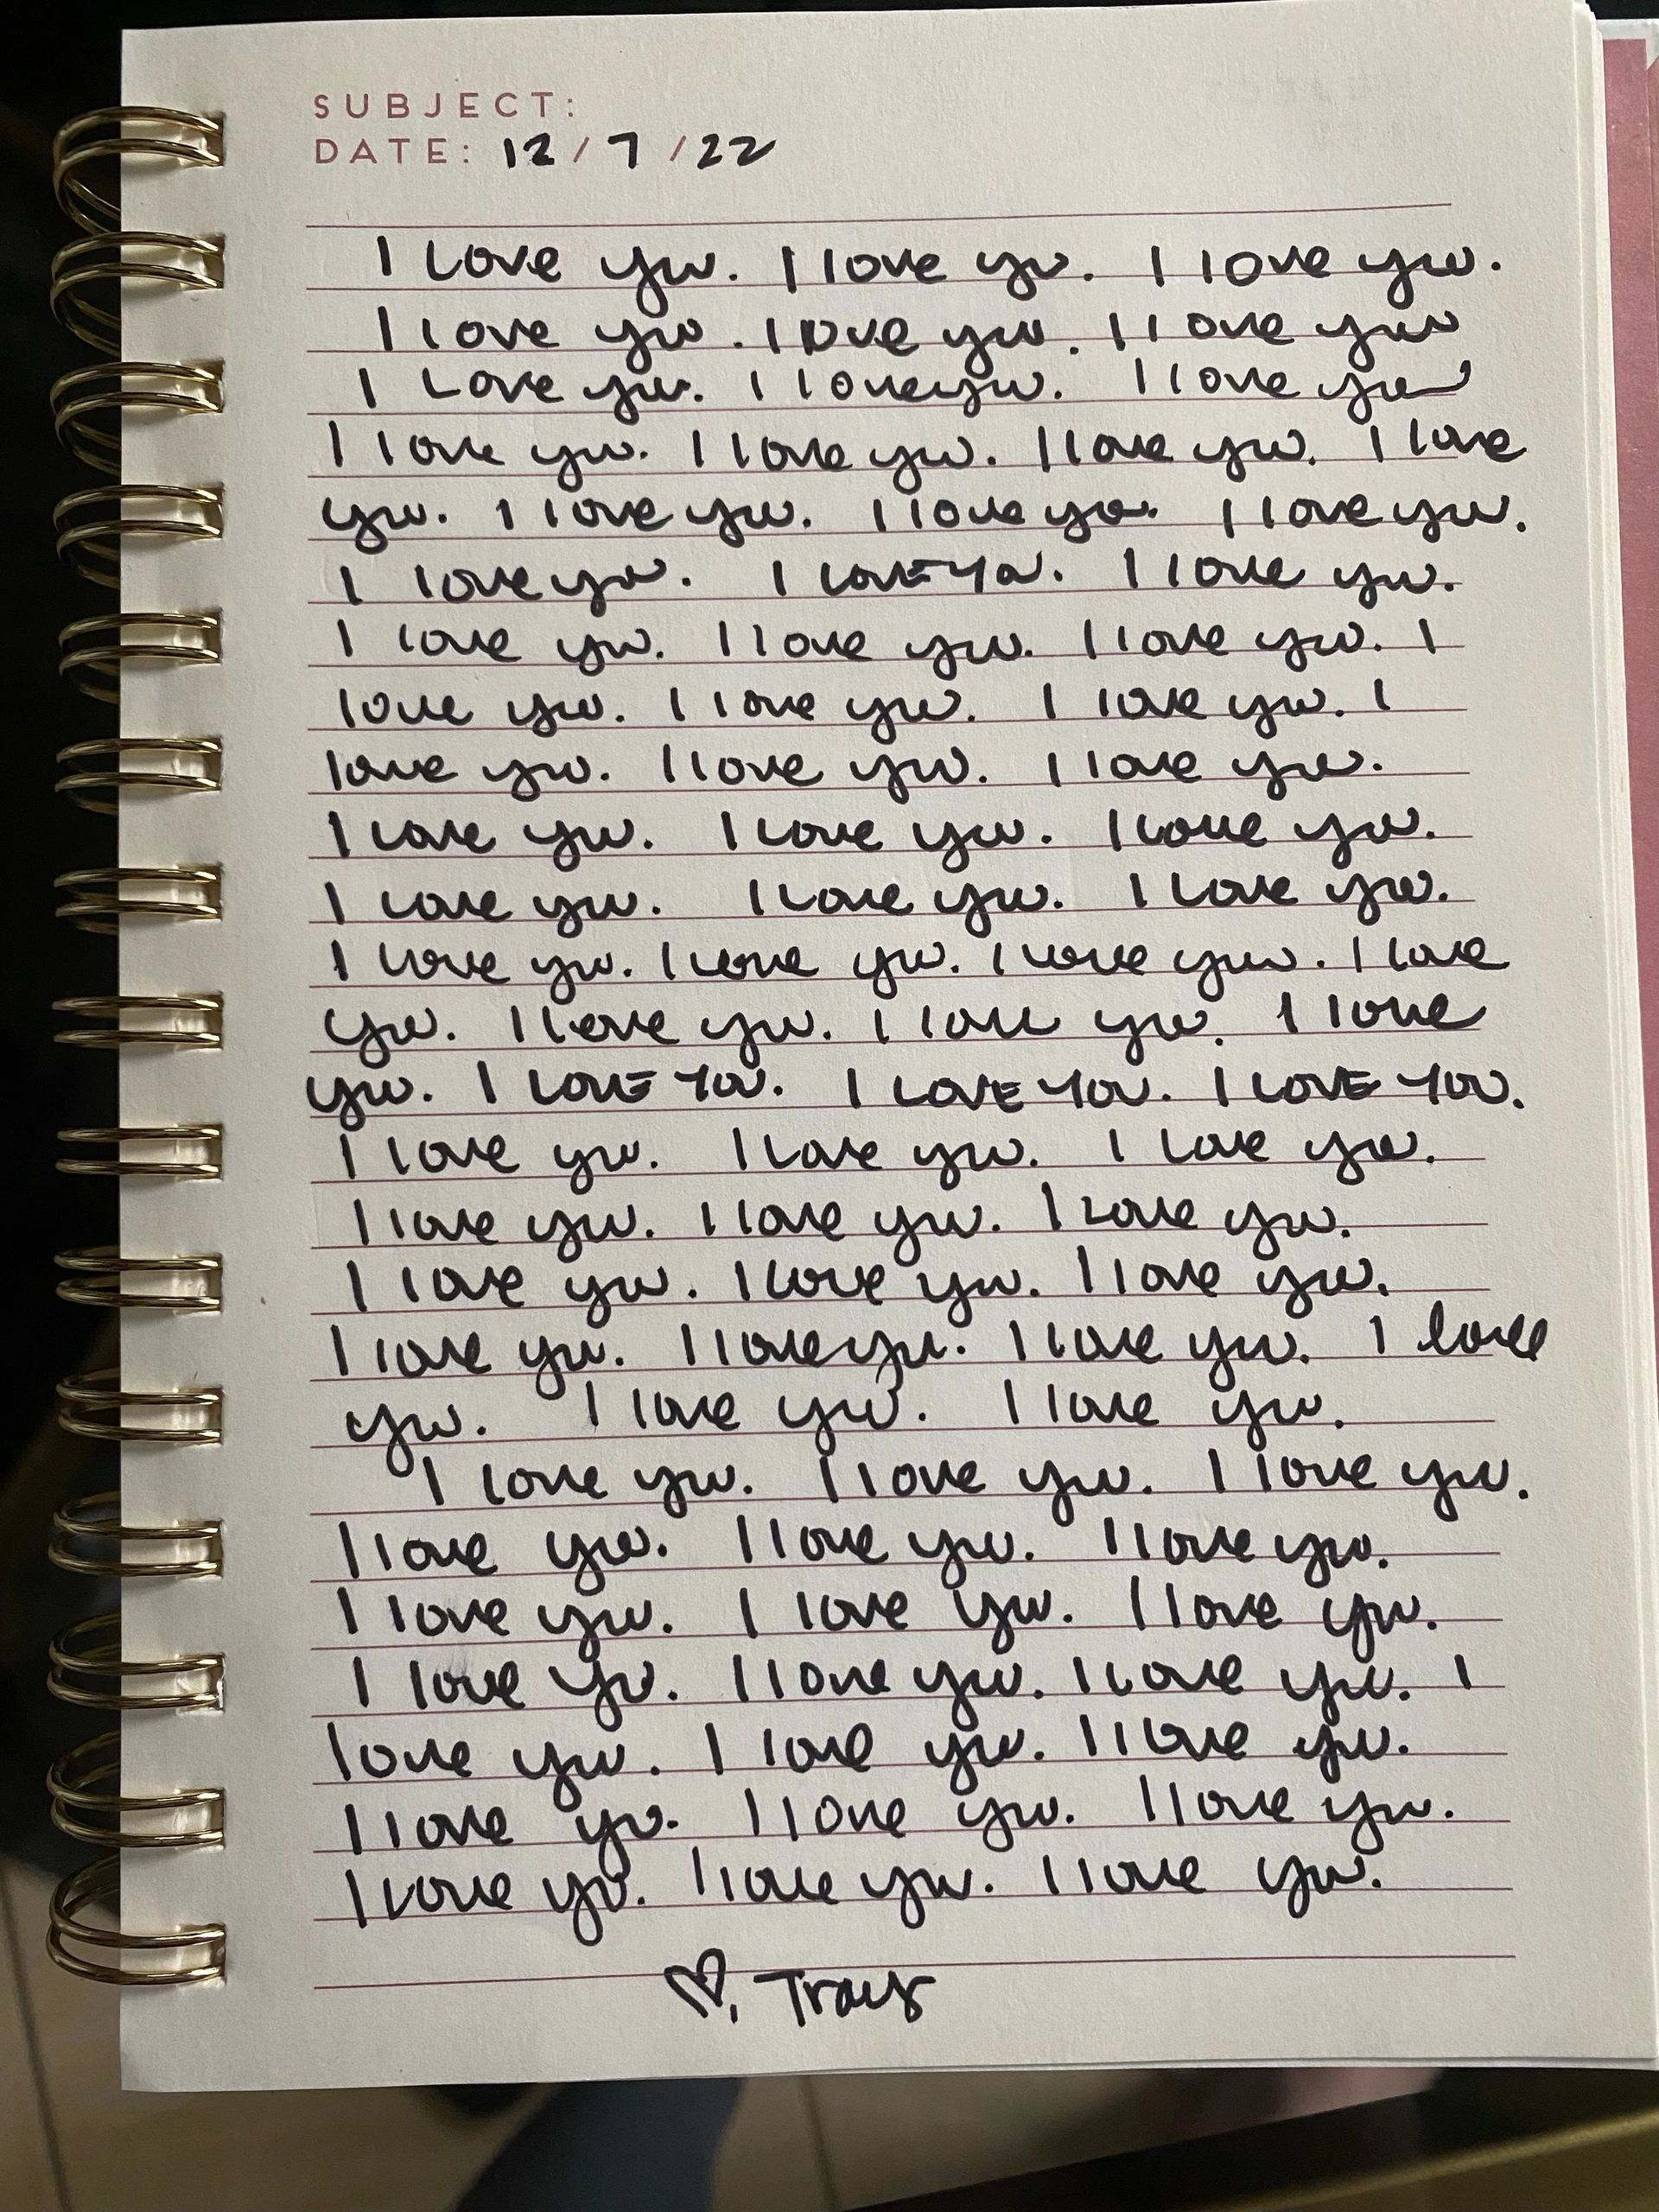 SUBJECT:
DATE: 12/7/22
I Love you. I love you. I love you.
I love you. I love you. I love you
I Love you. I love you. I love you
I love you. I love you. I love you. I love
you. I love you. I love you. I love you.
I love you. I LOVE YOU. I love you.
I love you. I love you. I love you. I
love you. I love you. I love you. I
love you. I love you. I love you.
I love you. I love you. I love you.
I love you. I love you. I love you.
I love you. I love you. I love you. I love
you. I love you. I love you. I love
you. I LOVE YOU. I LOVE YOU. I LOVE YOU.
I love you. I love you. I love you.
I love you. I love you. I love you.
I love you. I love you. I love you.
I love you. I love you. I love you. I love
you. I love you. I love you.
I love you. I love you. I love you.
I love you. I love you. I love you.
I love you. I love you. I love you.
I love you. I love you. I love you. I
love you. I love you. I love you.
I love you. I love you. I love you.
I love you. I love you. I love you.
♡, Tracy